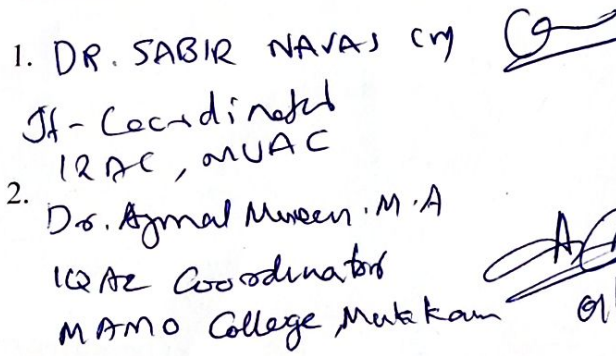 1. DR. SABIR NAVAS CM
Jt-Coordinator
IQAC, MUAC
2.
Dr. Ajmal Mueen. M.A
IQAC Coordinator
MAMO College, Mukkam